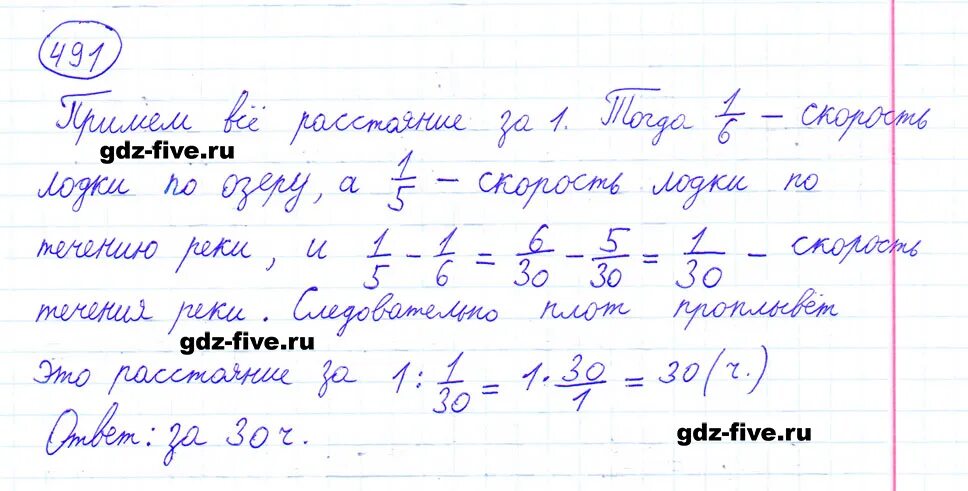 491
Примем всё расстояние за 1. Тогда 1/6 – скорость
gdz-five.ru
лодки по озеру, а 1/5 – скорость лодки по
течению реки, и 1/5 - 1/6 = 6/30 - 5/30 = 1/30 – скорость
течения реки. Следовательно плот проплывёт
gdz-five.ru
это расстояние за 1 : 1/30 = 1 · 30/1 = 30 (ч.)
Ответ: за 30 ч.
gdz-five.ru